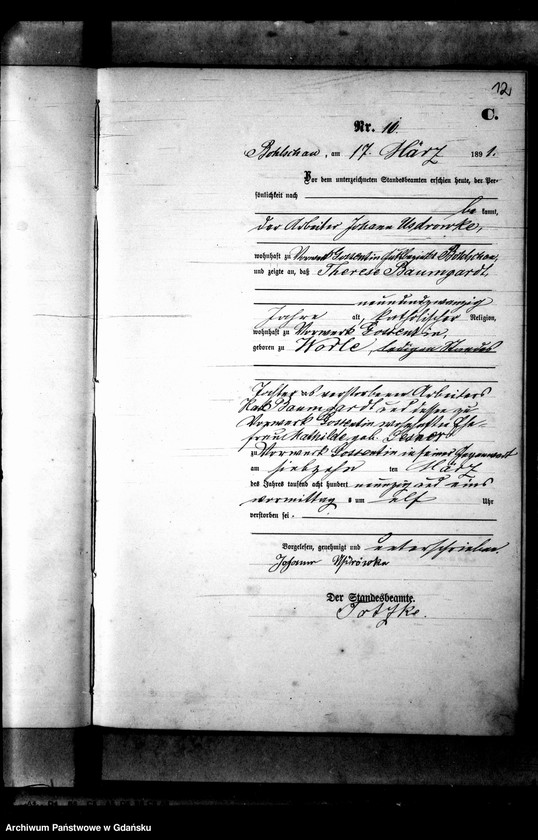 12
C.
Nr. 10.
Bohlschau, am 17. März 1891.
Vor dem unterzeichneten Standesbeamten erschien heute, der Per-
sönlichkeit nach
be kannt,
der Arbeiter Johann Usdrowke,
wohnhaft zu Vorwerk Gossentin Gutsbezirks Bohlschau,
und zeigte an, daß Therese Baumgardt
neunundzwanzig
Jahre alt, katholischer Religion,
wohnhaft zu Vorwerk Gossentin,
geboren zu Worle, ledigen Standes
Tochter des verstorbenen Arbeiters
Baumgardt und dessen zu
Vorwerk Gossentin wohnhaften Ehe-
frau Mathilde geb.
zu Vorwerk Gossentin in seiner Gegenwart
am siebzehn ten März
des Jahres tausend acht hundert neunzig und eins
vormittags um elf Uhr
verstorben sei.
Vorgelesen, genehmigt und unterschrieben
Johann
Der Standesbeamte.
Archiwum Państwowe w Gdańsku